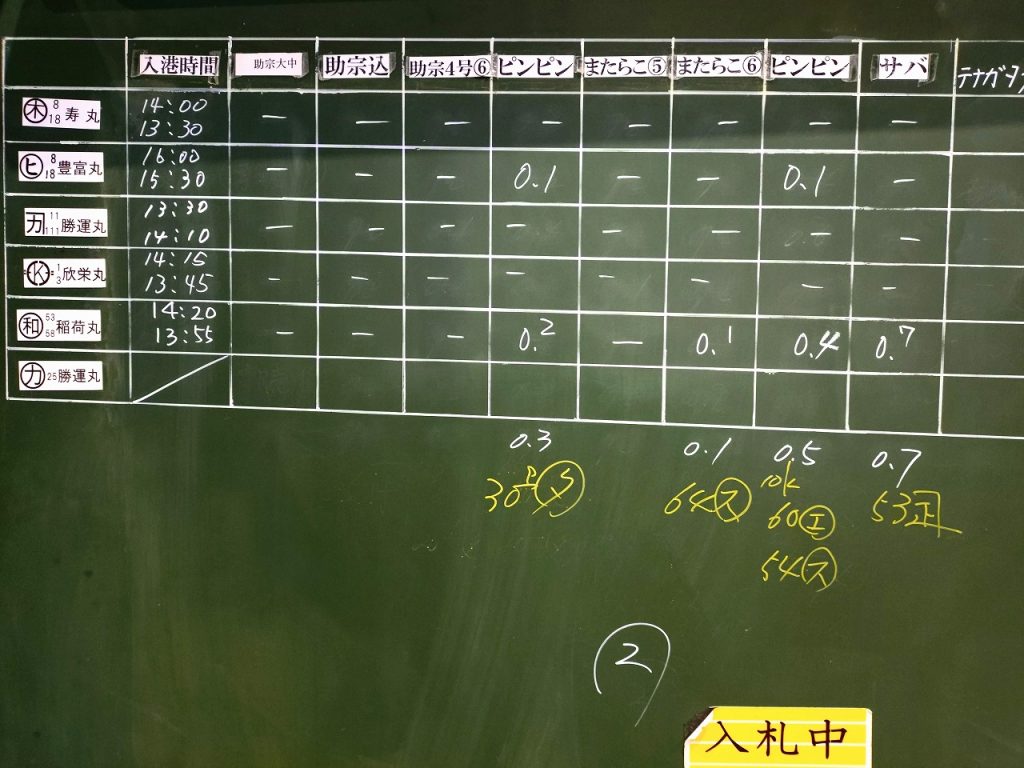 入港時間 助宗大中 助宗込 助宗4号⑥ ピンピン またらこ⑤ またらこ⑥ ピンピン サバ テナガタラ
㊍ 8 18 寿丸 14:00 13:30 — — — — — — — —
ヒ 8 18 豊富丸 16:00 15:30 — — — 0.1 — — 0.1 —
カ 11 111 勝運丸 13:30 14:10 — — — — — — — —
K 1 3 欣栄丸 14:15 13:45 — — — — — — — —
和 53 58 稲荷丸 14:20 13:55 — — — 0.2 — 0.1 0.4 0.7
カ 25 勝運丸
0.3 0.1 0.5 0.7
30 メ 64 ス 10k 53 正
60 エ
54 ス
②
入札中